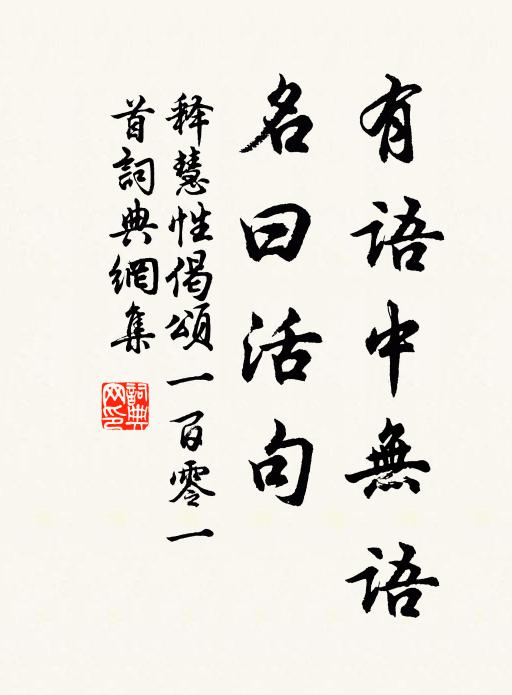 有語中無語
名曰活句
释慧性偈頌一百零一
首詞典網集
詞典网印